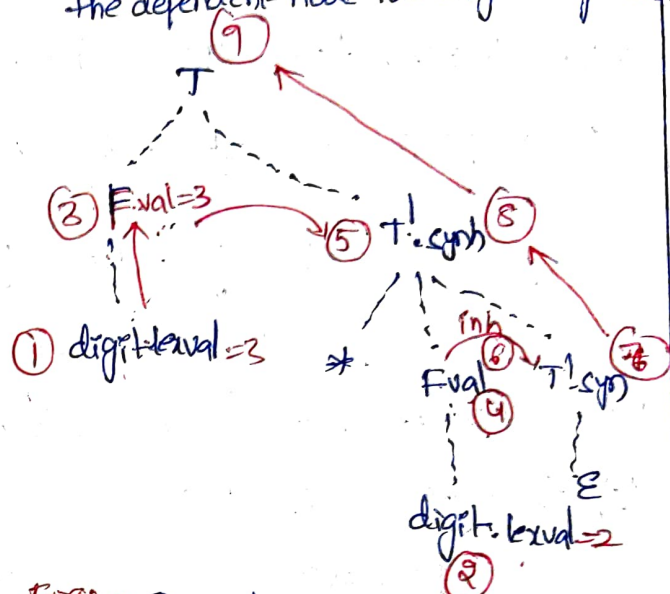 the depend
9
T
3 F.val=3
5 T'.synh 8
1 digit.lexval=3
* inh 6
F.val 4 T'.syn
ε
digit.lexval=2
2